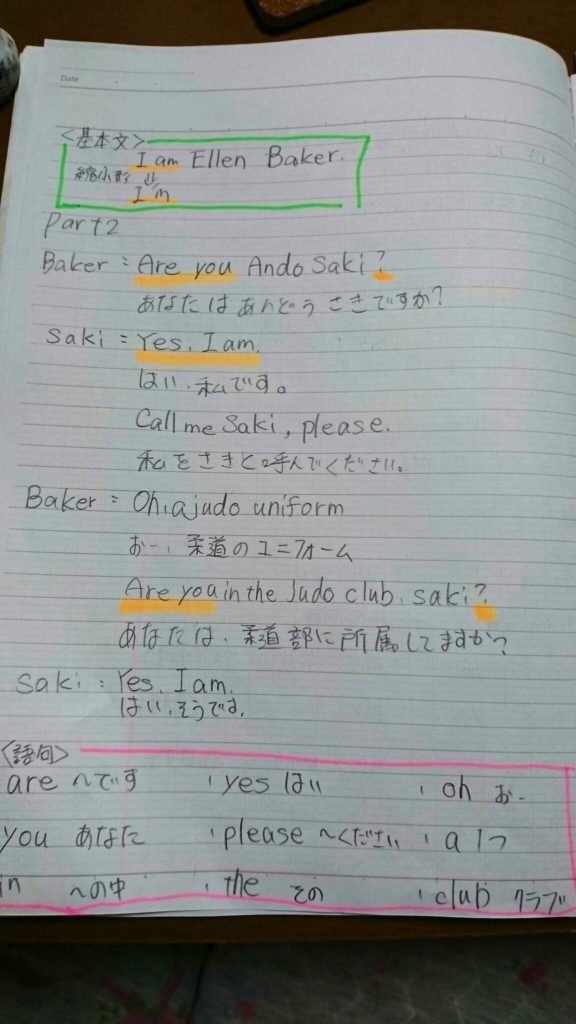 Date
<基本文>
I am Ellen Baker.
縮小形 ⇓
I'm
Part2
Baker : Are you Ando Saki?
あなたはあんどうさきですか?
Saki : Yes, I am.
はい、私です。
Call me Saki, please.
私をさきと呼んでください。
Baker : Oh, a judo uniform
おー、柔道のユニフォーム
Are you in the judo club, saki?
あなたは、柔道部に所属してますか?
Saki : Yes, I am.
はい、そうです。
<語句>
are 〜です ・yes はい ・oh おー
you あなた ・please 〜ください ・a 1つ
in 〜の中 ・the その ・club クラブ